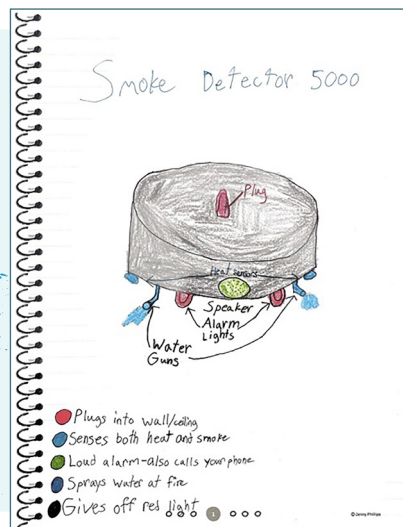 Smoke Detector 5000
Plug
Heat sensors
Speaker
Alarm
Lights
Water
Guns
Plugs into wall/ceiling
Senses both heat and smoke
Loud alarm-also calls your phone
Sprays water at fire
Gives off red light
1
© Jenny Phillips